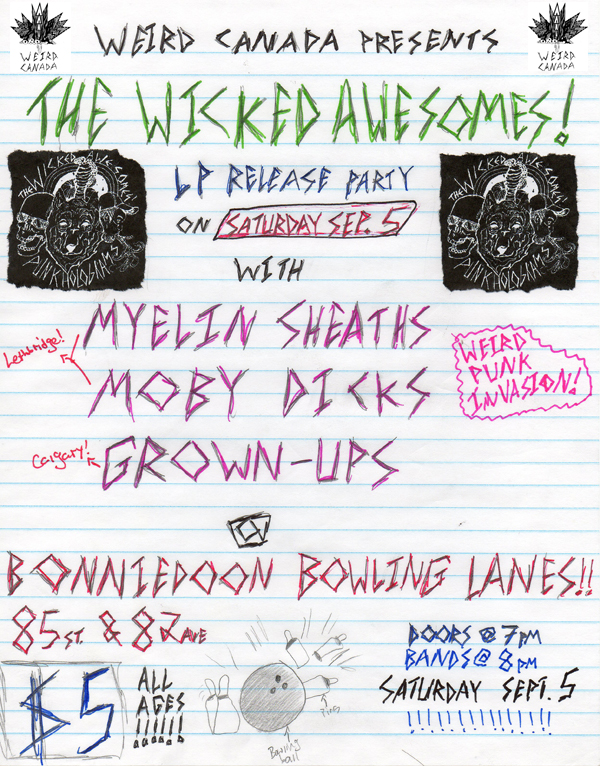 WEIRD CANADA
WEIRD CANADA PRESENTS
WEIRD CANADA
THE WICKED AWESOMES!
THE WICKED AWESOMES
PUNK HOLOGRAMS
LP RELEASE PARTY
ON SATURDAY SEP. 5
THE WICKED AWESOMES
PUNK HOLOGRAMS
WITH
Lethbridge!
MYELIN SHEATHS
MOBY DICKS
WEIRD
PUNK
INVASION!
Calgary!
GROWN-UPS
@
BONNIEDOON BOWLING LANES!!
85 ST. & 82 AVE
DOORS @ 7PM
BANDS @ 8PM
SATURDAY SEPT. 5
!!!!!!!!!!!!!!
$5
ALL
AGES
!!!!!!
Pins
Bowling
ball